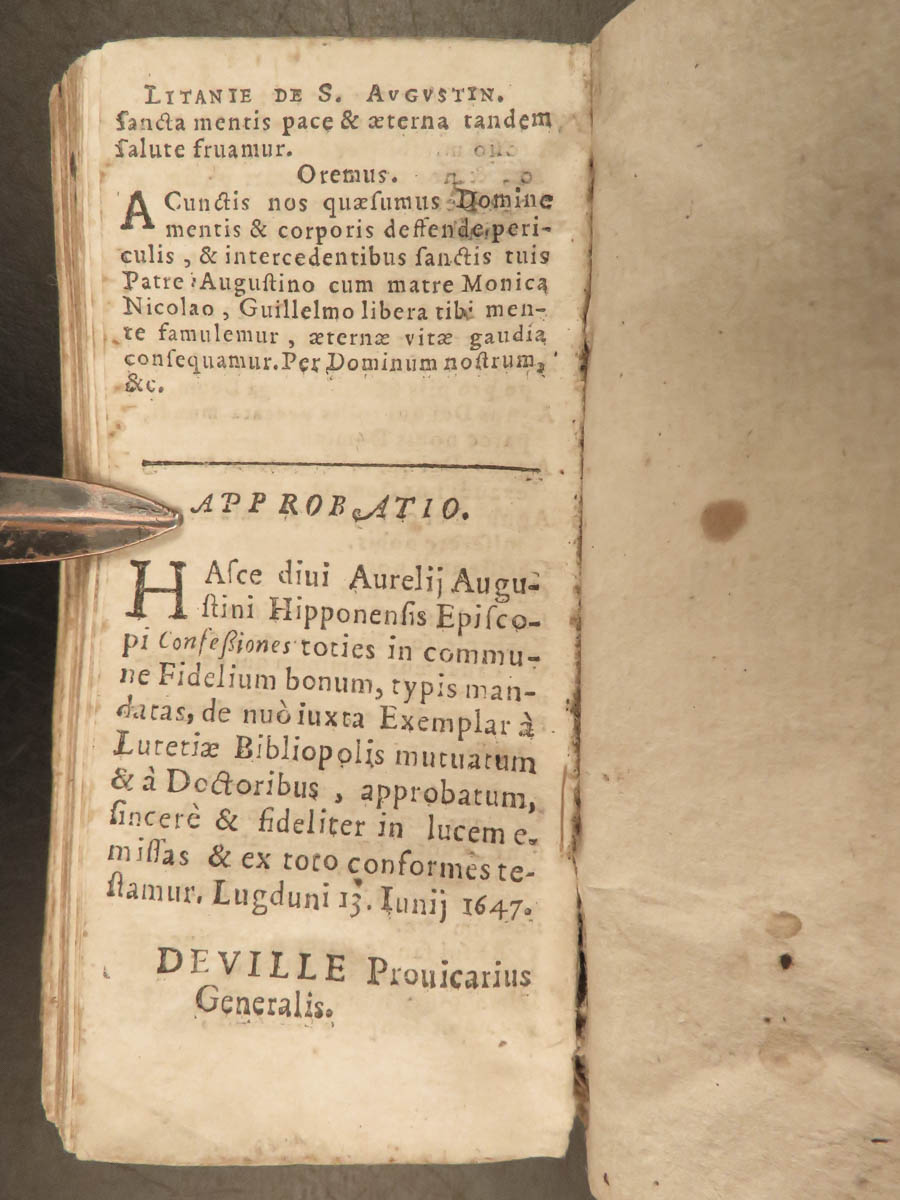 LITANIE DE S. AVGVSTIN.
ſancta mentis pace & æterna tandem
ſalute fruamur.
Oremus.
A Cunctis nos quæſumus Domine
mentis & corporis deffende, peri-
culis, & intercedentibus ſanctis tuis
Patre Auguſtino cum matre Monica
Nicolao, Guillelmo libera tibi men-
te famulemur, æternæ vitæ gaudia
conſequamur. Per Dominum noſtrum,
&c.
APPROBATIO.
HAſce diui Aurelij Augu-
ſtini Hipponenſis Epiſco-
pi Confeßiones toties in commu-
ne Fidelium bonum, typis man-
datas, de nuò iuxta Exemplar à
Lutetiæ Bibliopolis mutuatum
& à Doctoribus, approbatum,
ſincerè & fideliter in lucem e-
miſſas & ex toto conformes te-
ſtamur. Lugduni 13. Iunij 1647.
DEVILLE Prouicarius
Generalis.